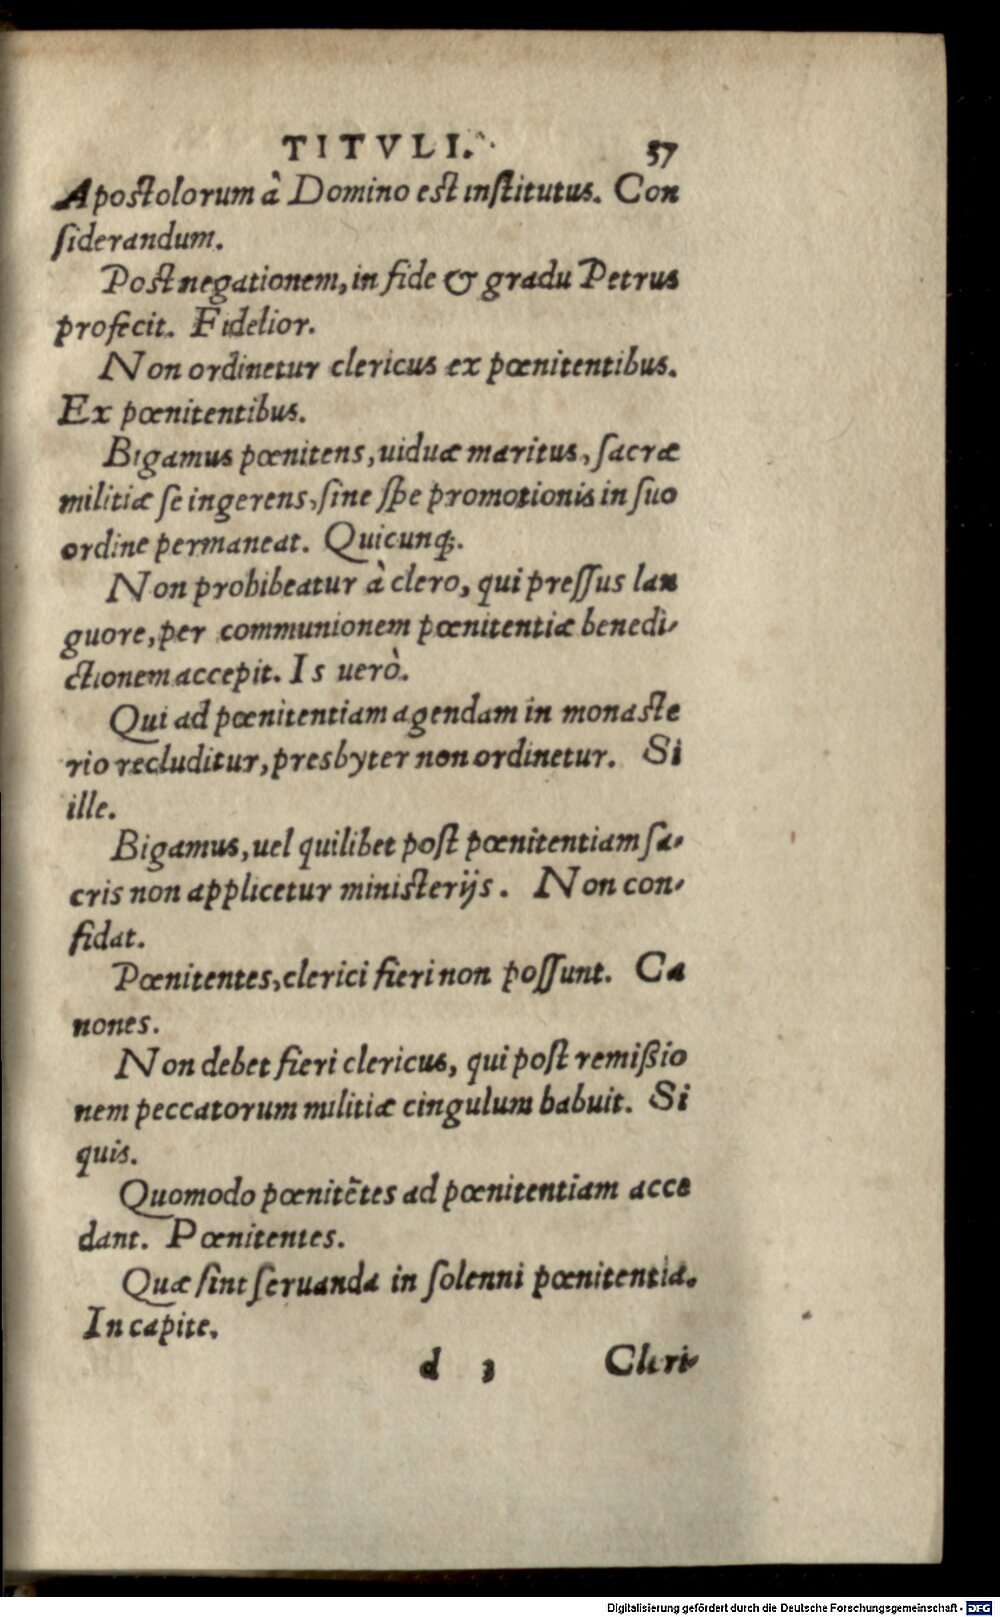 TITVLI. 57
Apostolorum à Domino est institutus. Con
siderandum.
Post negationem, in fide & gradu Petrus
profecit. Fidelior.
Non ordinetur clericus ex pœnitentibus.
Ex pœnitentibus.
Bigamus pœnitens, uiduæ maritus, sacræ
militiæ se ingerens, sine spe promotionis in suo
ordine permaneat. Quicunq;.
Non prohibeatur à clero, qui pressus lan
guore, per communionem pœnitentiæ benedi-
ctionem accepit. Is uerò.
Qui ad pœnitentiam agendam in monaste
rio recluditur, presbyter non ordinetur. Si
ille.
Bigamus, uel quilibet post pœnitentiam sa-
cris non applicetur ministerijs. Non con-
fidat.
Pœnitentes, clerici fieri non possunt. Ca
nones.
Non debet fieri clericus, qui post remißio
nem peccatorum militiæ cingulum habuit. Si
quis.
Quomodo pœnitētes ad pœnitentiam acce
dant. Pœnitentes.
Quæ sint seruanda in solenni pœnitentia.
In capite.
d 3 Cleri-
Digitalisierung gefördert durch die Deutsche Forschungsgemeinschaft - DFG